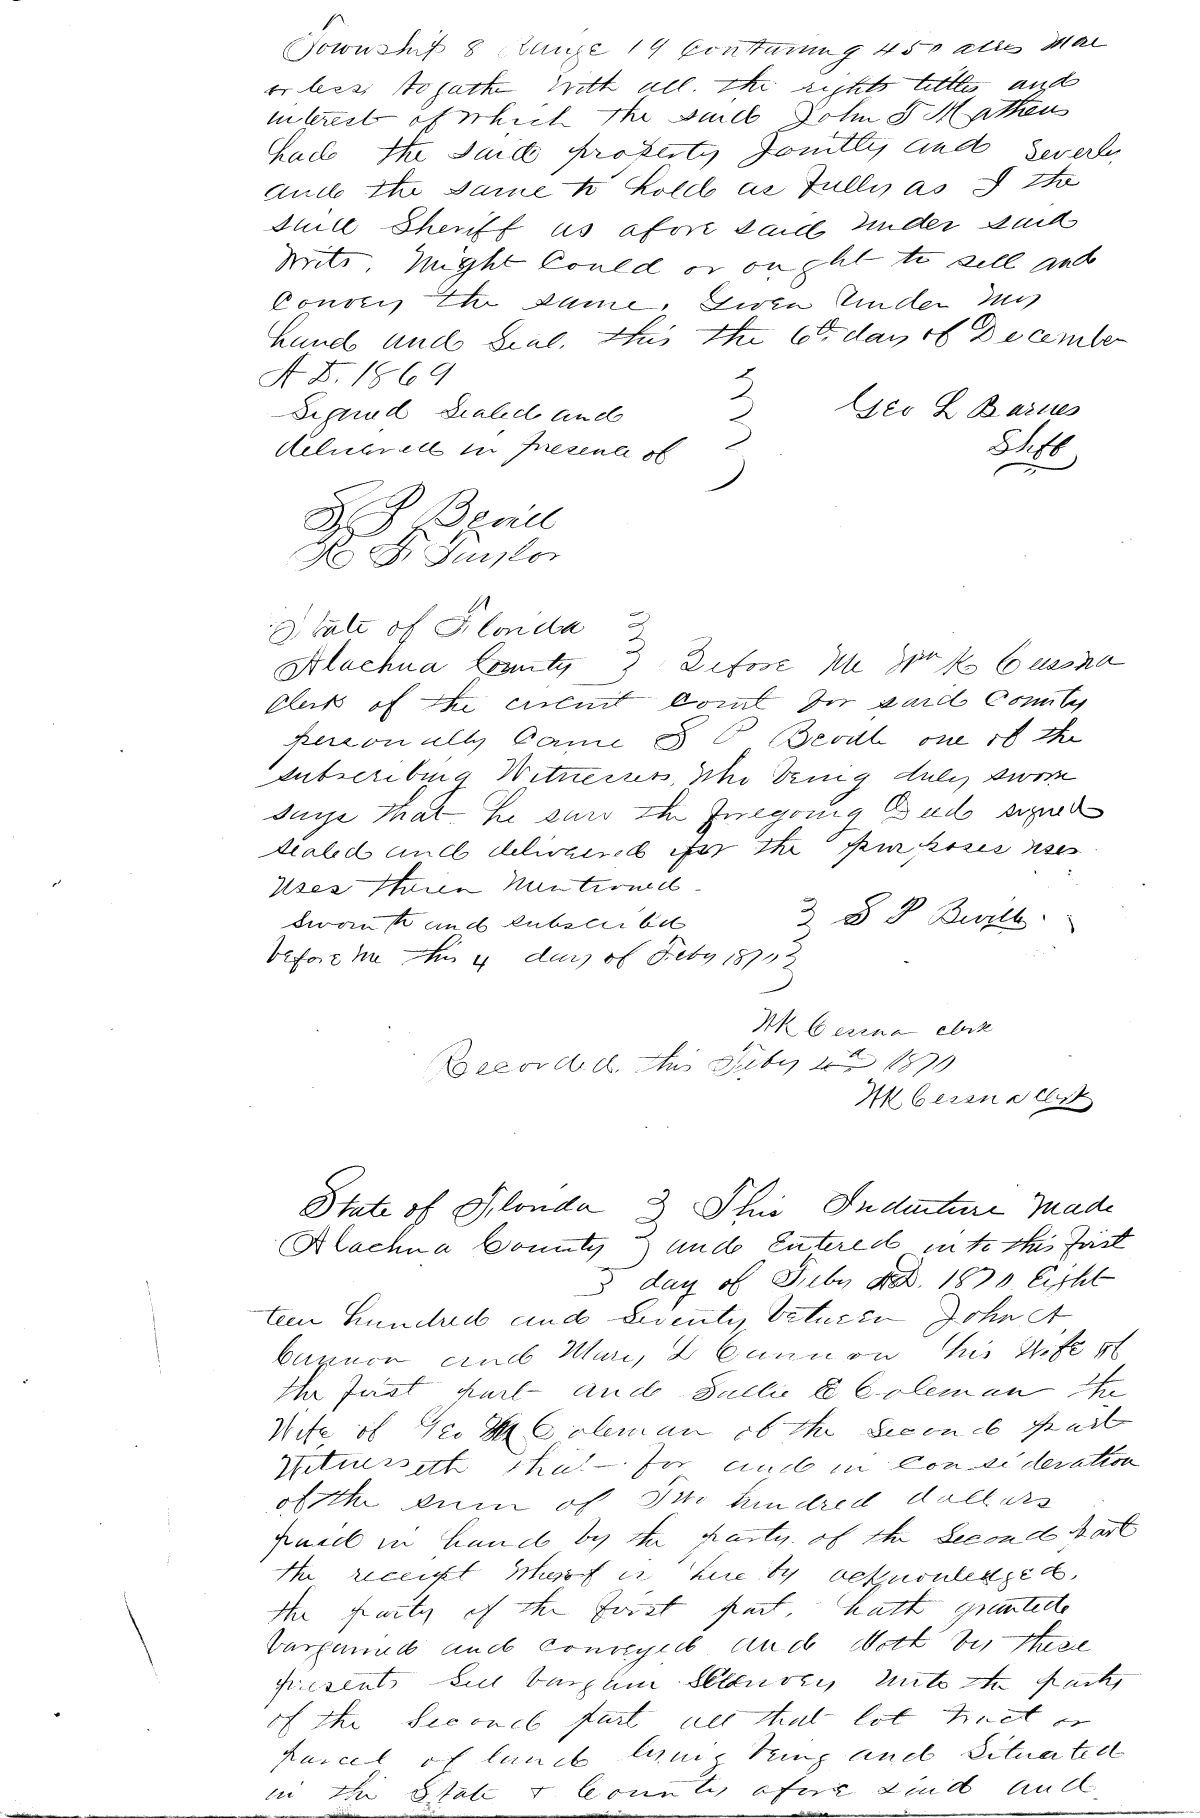 Township 8 Range 19 containing 450 acres more
or less togathe with all. the rights tittles and
interest of which the said John T Mathews
had the said property Jointly and Severly
and the same to hold as fully as I the
said Sheriff as afore said under said
Writs. Might Could or ought to sell and
Convey the same. Given Under My
hand and Seal. this the 6th day of December
A D. 1869
Signed Sealed and
Geo L Barnes
delivered in presence of
Shff
S P Bevill
R F Taylor
State of Florida
Alachua County Before Me Wm K Cessna
Clerk of the circuit Court for said County
personally Came S P Bevill one of the
subscribing Witnesses, Who being duly sworn
says that he saw the foregoing Deed signed
sealed and delivered for the purposes uses
Uses therein Mentioned
Sworn to and subscribed
S P Bevill.
before me this 4 day of Feby 1870
WK Cessna clerk
Recorded. this Feby 4th 1870
WK Cessna Clerk
State of Florida This Indenture Made
Alachua County and Entered into this first
day of Feby AD. 1870 Eight
teen hundred and Seventy between John A
Cannon and Mary L Cannon his Wife of
the first part and Sallie E Coleman the
Wife of Geo M Coleman of the Second part
Witnesseth that for and in Consideration
of the sum of Two hundred dollars
paid in hand by the party of the Second part
the receipt Whereof is here by acknowledged.
the party of the first part. hath granted
bargained and conveyed and doth by these
presents Sell bargain & Convey Unto the party
of the Second part all that lot tract or
parcel of land lying being and Situated
in the State & County afore said and